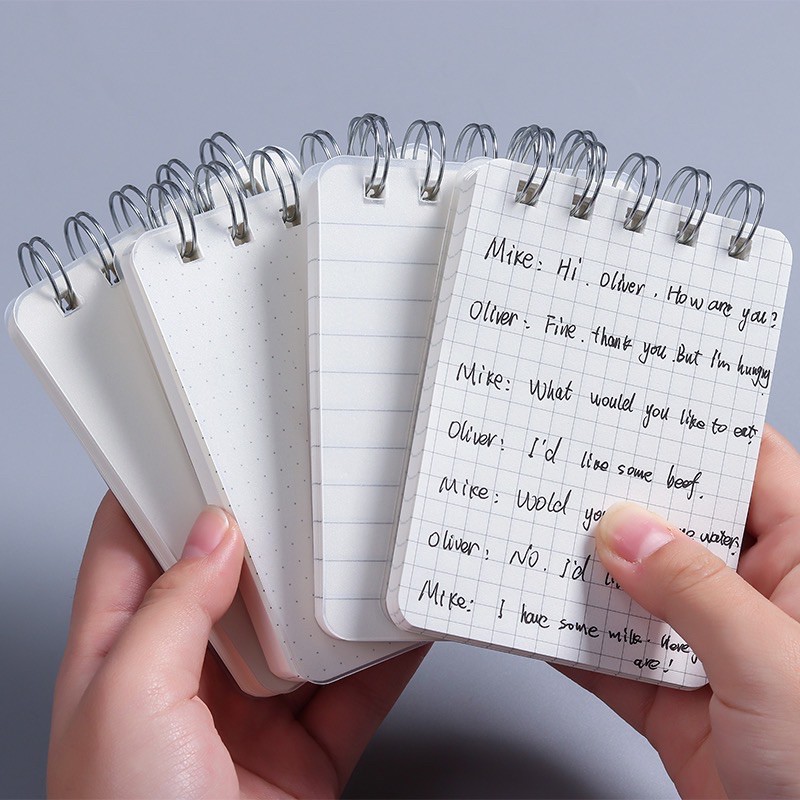 Mike: Hi. Oliver. How are you?
Oliver: Fine. thank you. But I'm hungry
Mike: What would you like to eat?
Oliver: I'd like some beef.
Mike: Wold you water?
Oliver: No. I'd
Mike: I have some milk. Here
are!